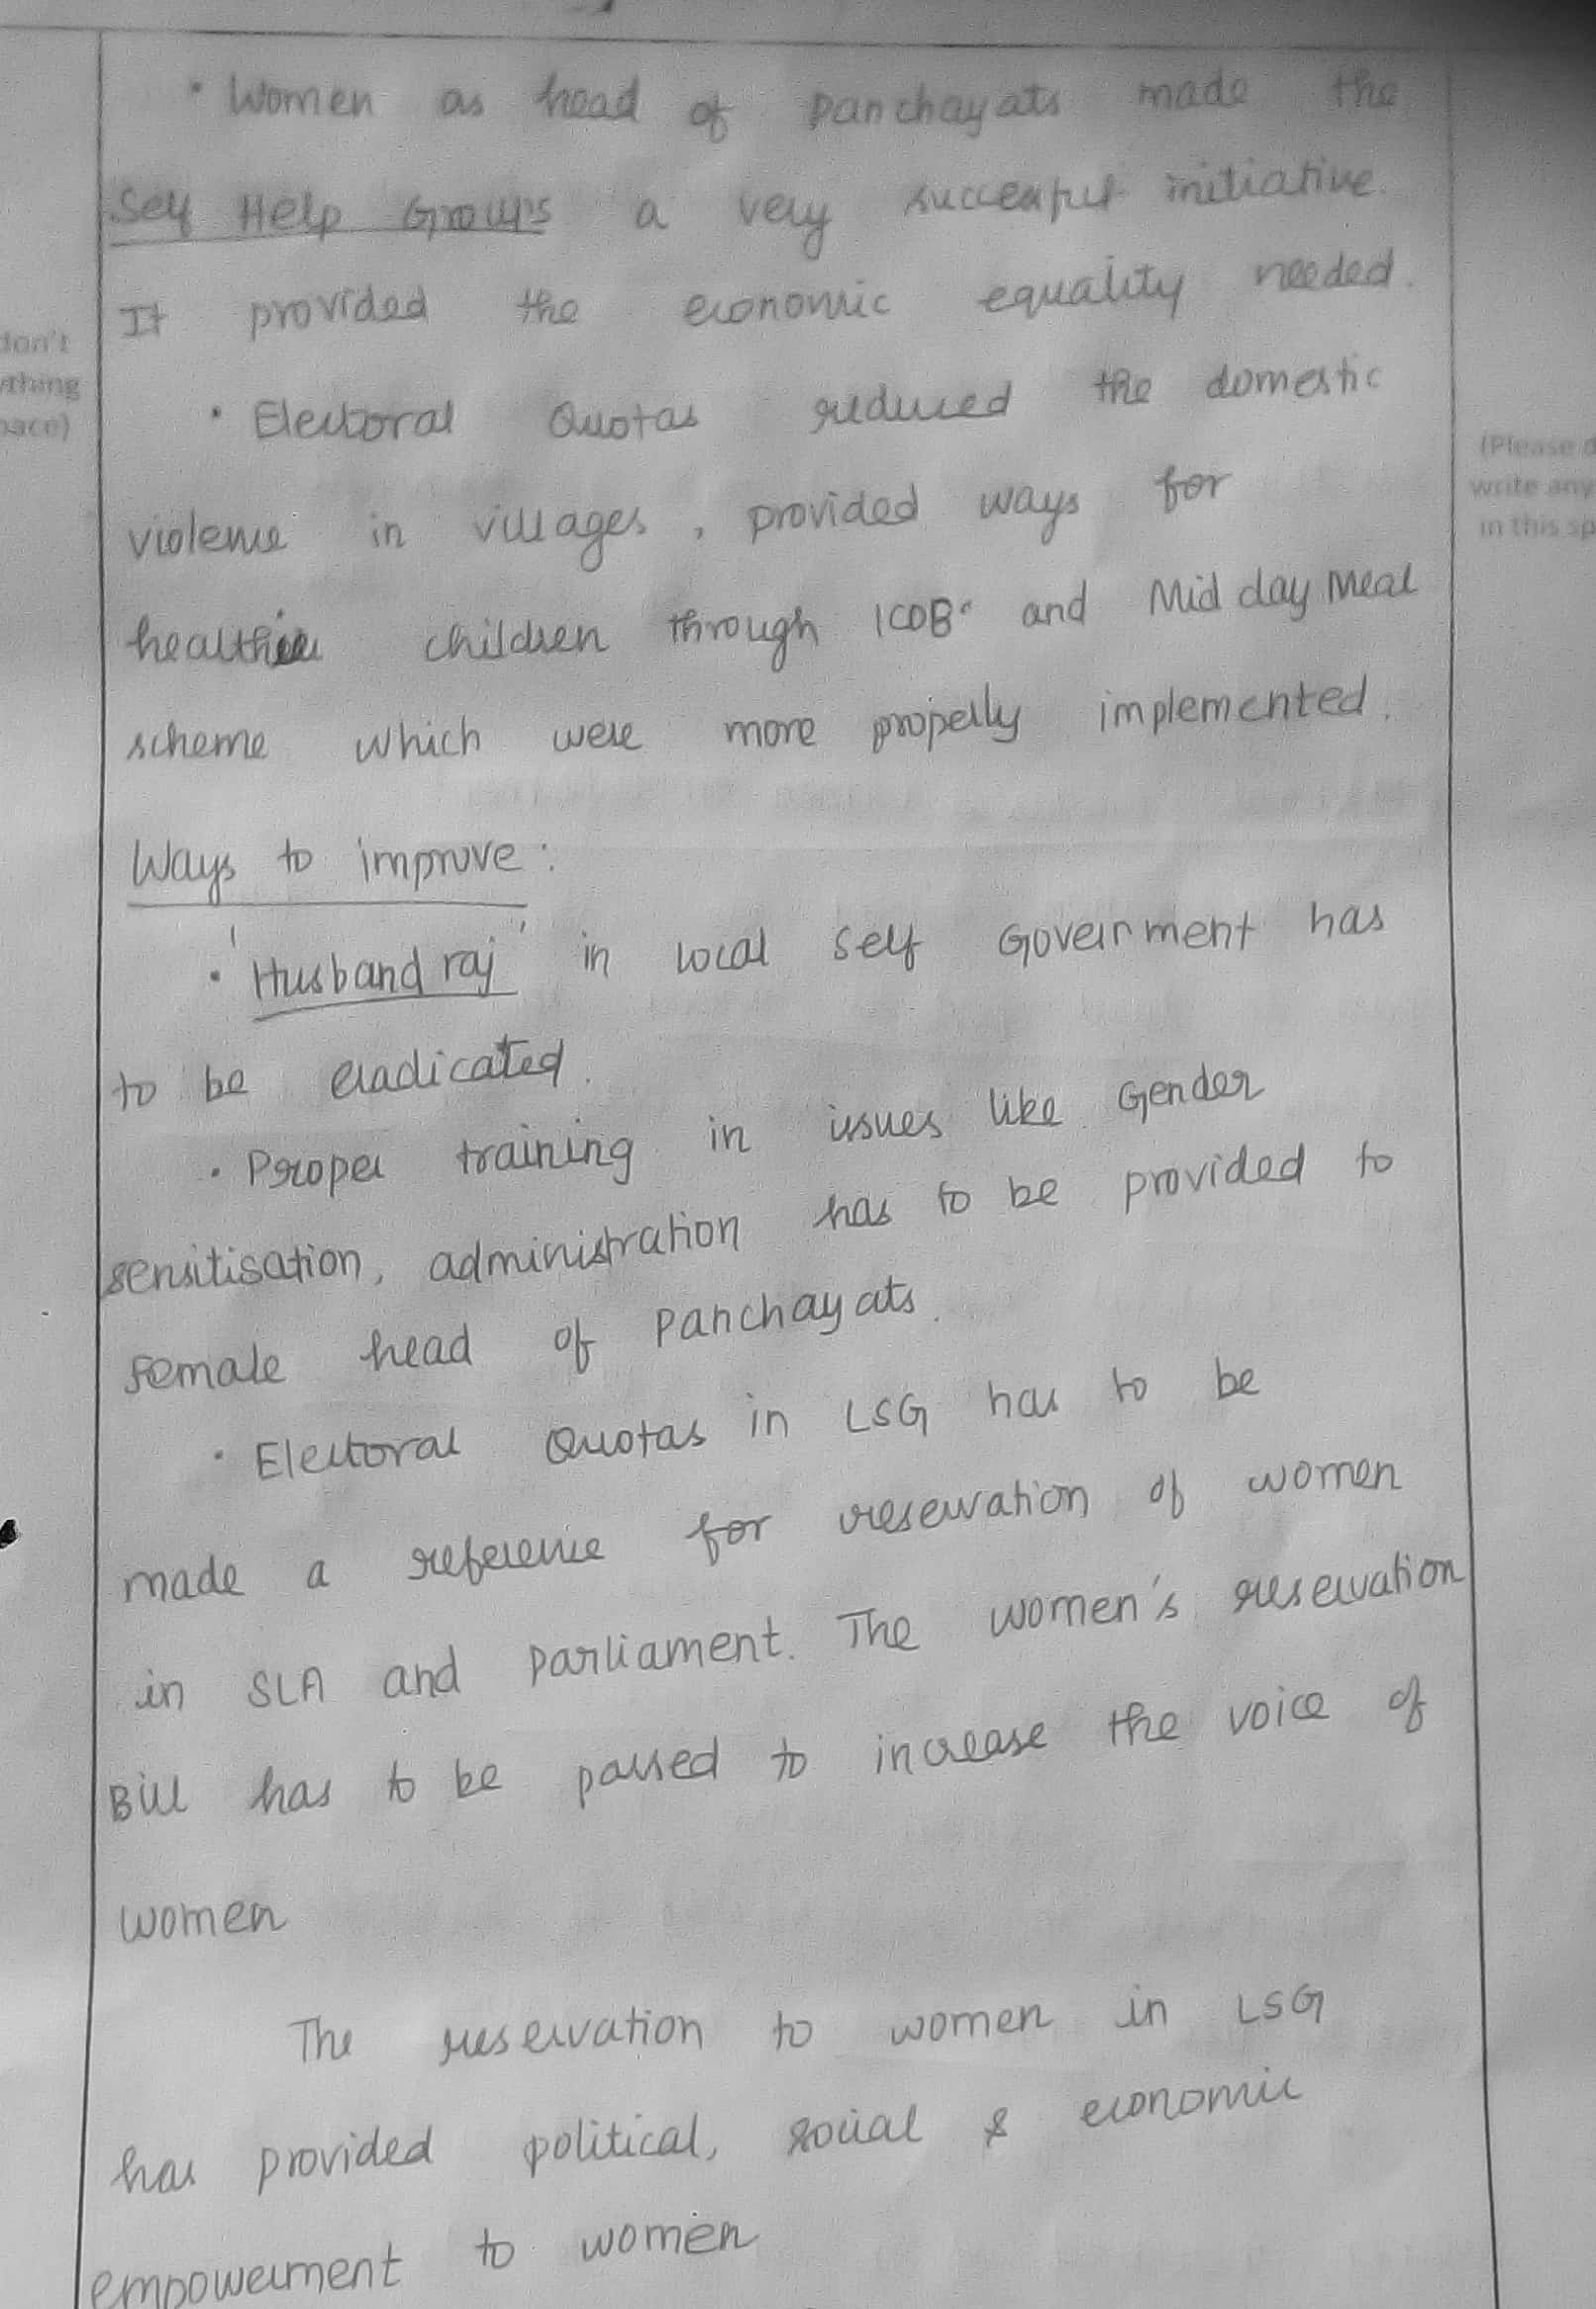 • Women as head of Panchayats made the
Self Help Groups a very successful initiative.
It provided the economic equality needed.
• Electoral Quotas reduced the domestic
violence in villages, provided ways for
healthier children through ICDB and Mid day Meal
scheme which were more properly implemented.
Ways to improve:
• 'Husband raj' in local Self Government has
to be eradicated.
• Proper training in issues like Gender
sensitisation, administration has to be provided to
female head of Panchayats.
• Electoral Quotas in LSG has to be
made a reference for reservation of women
in SLA and Parliament. The women's reservation
Bill has to be passed to increase the voice of
women
The reservation to women in LSG
has provided political, social & economic
empowerment to women
don't
ything
pace)
(Please d
write any
in this sp